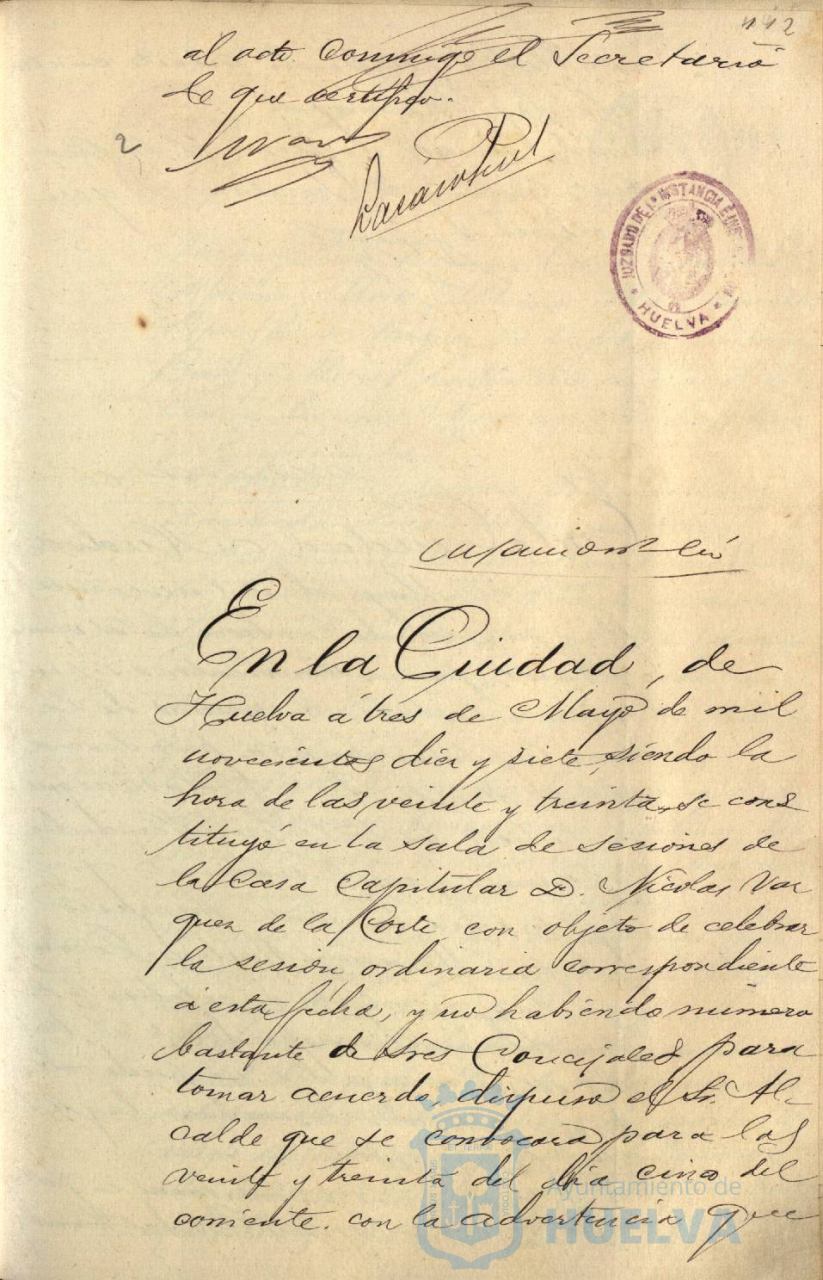 112
al acto conmigo el Secretario
de que certifico.
2
JUZGADO DE 1ª INSTANCIA É INS
HUELVA
En la Ciudad, de
Huelva á tres de Mayo de mil
novecientos diez y siete, siendo la
hora de las veinte y treinta, se cons
tituyó en la sala de sesiones de
la Casa Capitular D. Nicolas Vaz
quez de la Corte con objeto de celebrar
la sesión ordinaria correspondiente
á esta fecha, y no habiendo número
bastante de Sres Concejales para
tomar acuerdo, dispuso el Sr. Al-
calde que se convocara para las
veinte y treinta del dia cinco del
corriente con la advertencia que
Ayuntamiento de
HUELVA